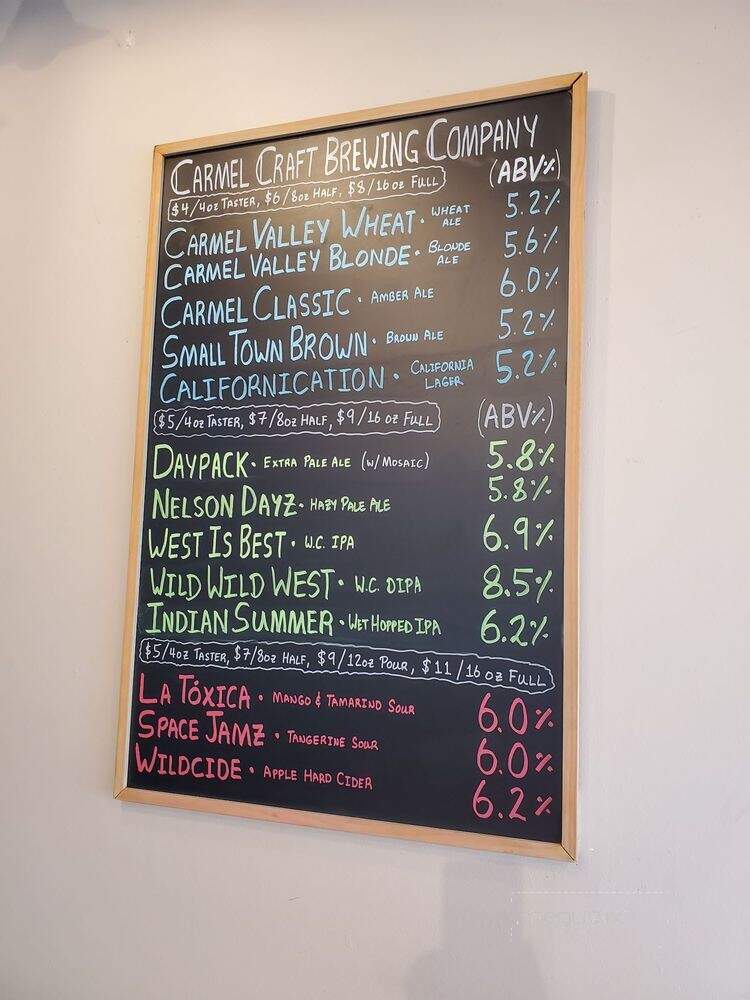 CARMEL CRAFT BREWING COMPANY
$4/4oz TASTER, $6/8oz HALF, $8/16oz FULL (ABV%)
CARMEL VALLEY WHEAT • WHEAT ALE 5.2%
CARMEL VALLEY BLONDE • BLONDE ALE 5.6%
CARMEL CLASSIC • AMBER ALE 6.0%
SMALL TOWN BROWN • BROWN ALE 5.2%
CALIFORNICATION • CALIFORNIA LAGER 5.2%
$5/4oz TASTER, $7/8oz HALF, $9/16 oz FULL (ABV%)
DAYPACK • EXTRA PALE ALE (W/ MOSAIC) 5.8%
NELSON DAYZ • HAZY PALE ALE 5.8%
WEST IS BEST • W.C. IPA 6.9%
WILD WILD WEST • W.C. DIPA 8.5%
INDIAN SUMMER • WET HOPPED IPA 6.2%
$5/4oz TASTER, $7/8oz HALF, $9/12oz POUR, $11/16 oz FULL
LA TÓXICA • MANGO & TAMARIND SOUR 6.0%
SPACE JAMZ • TANGERINE SOUR 6.0%
WILDCIDE • APPLE HARD CIDER 6.2%